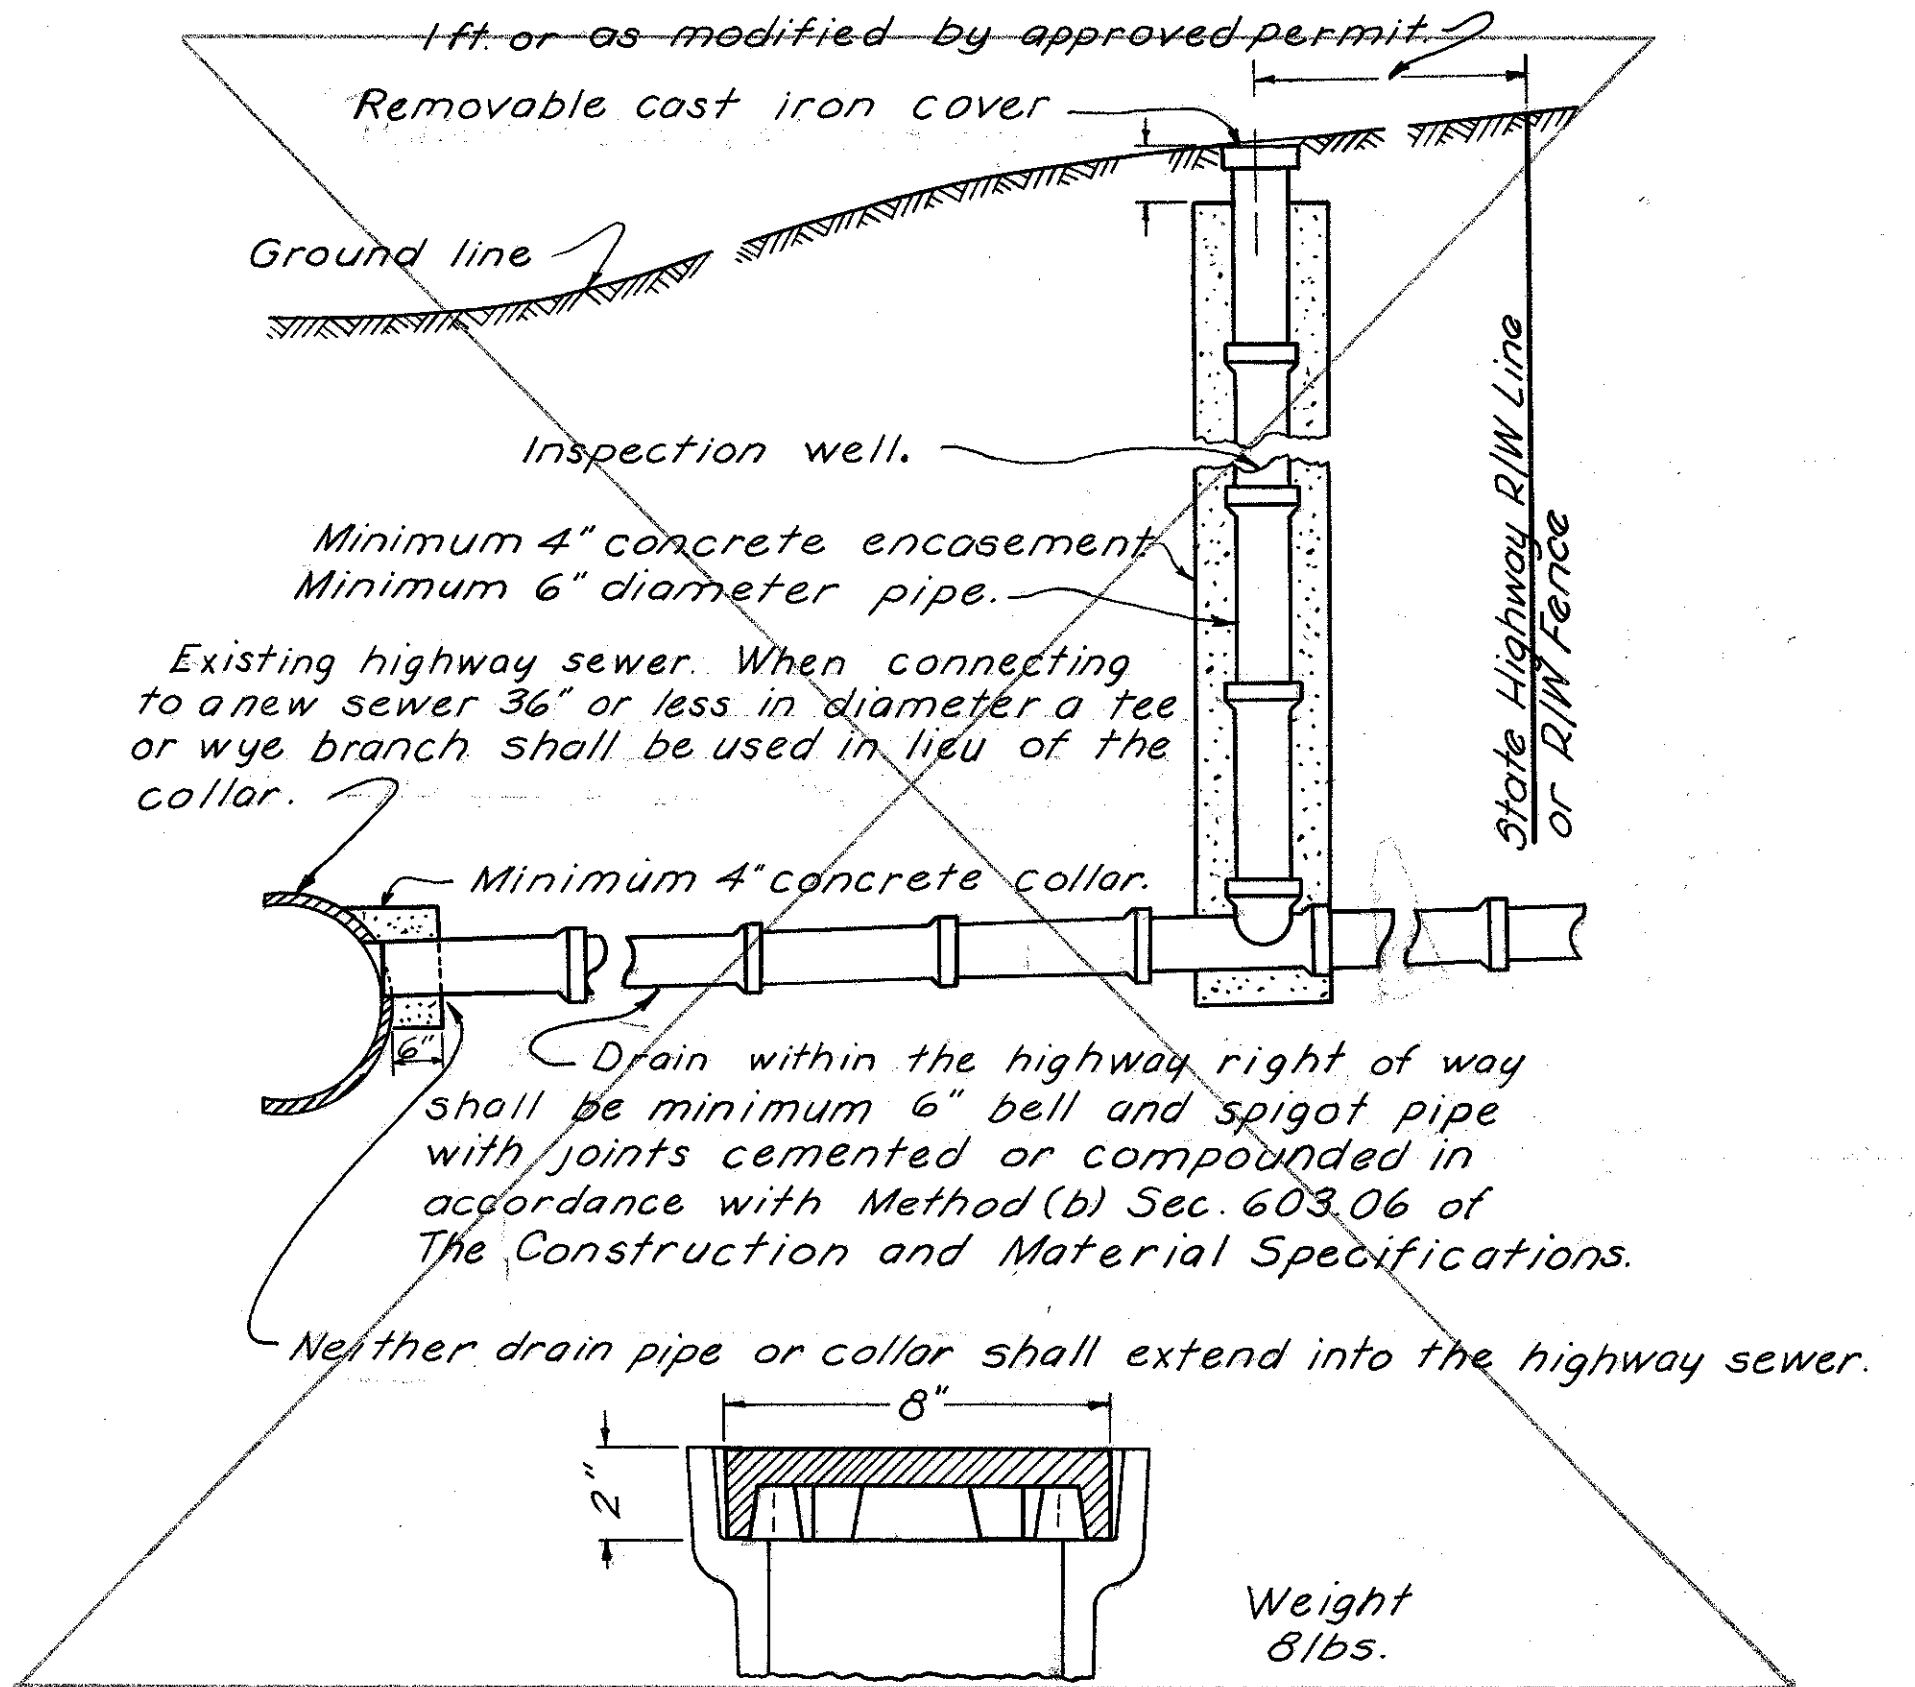 1 ft. or as modified by approved permit.
Removable cast iron cover
Ground line
Inspection well.
Minimum 4" concrete encasement
Minimum 6" diameter pipe.
State Highway R/W Line
or R/W Fence
Existing highway sewer. When connecting
to a new sewer 36" or less in diameter a tee
or wye branch shall be used in lieu of the
collar.
Minimum 4" concrete collar.
6"
Drain within the highway right of way
shall be minimum 6" bell and spigot pipe
with joints cemented or compounded in
accordance with Method (b) Sec. 603.06 of
The Construction and Material Specifications.
Neither drain pipe or collar shall extend into the highway sewer.
8"
2"
Weight
8 lbs.